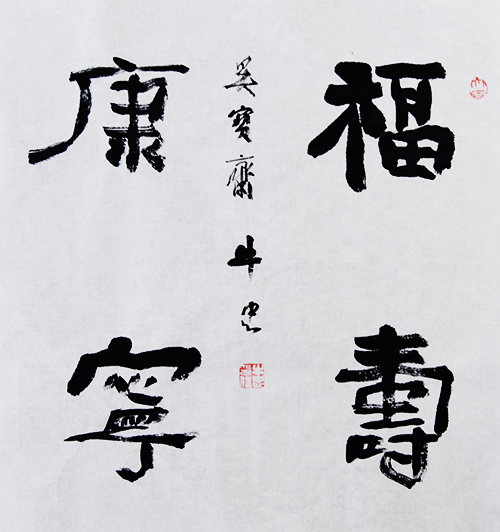 福壽
康寧
寶齋 牛忠